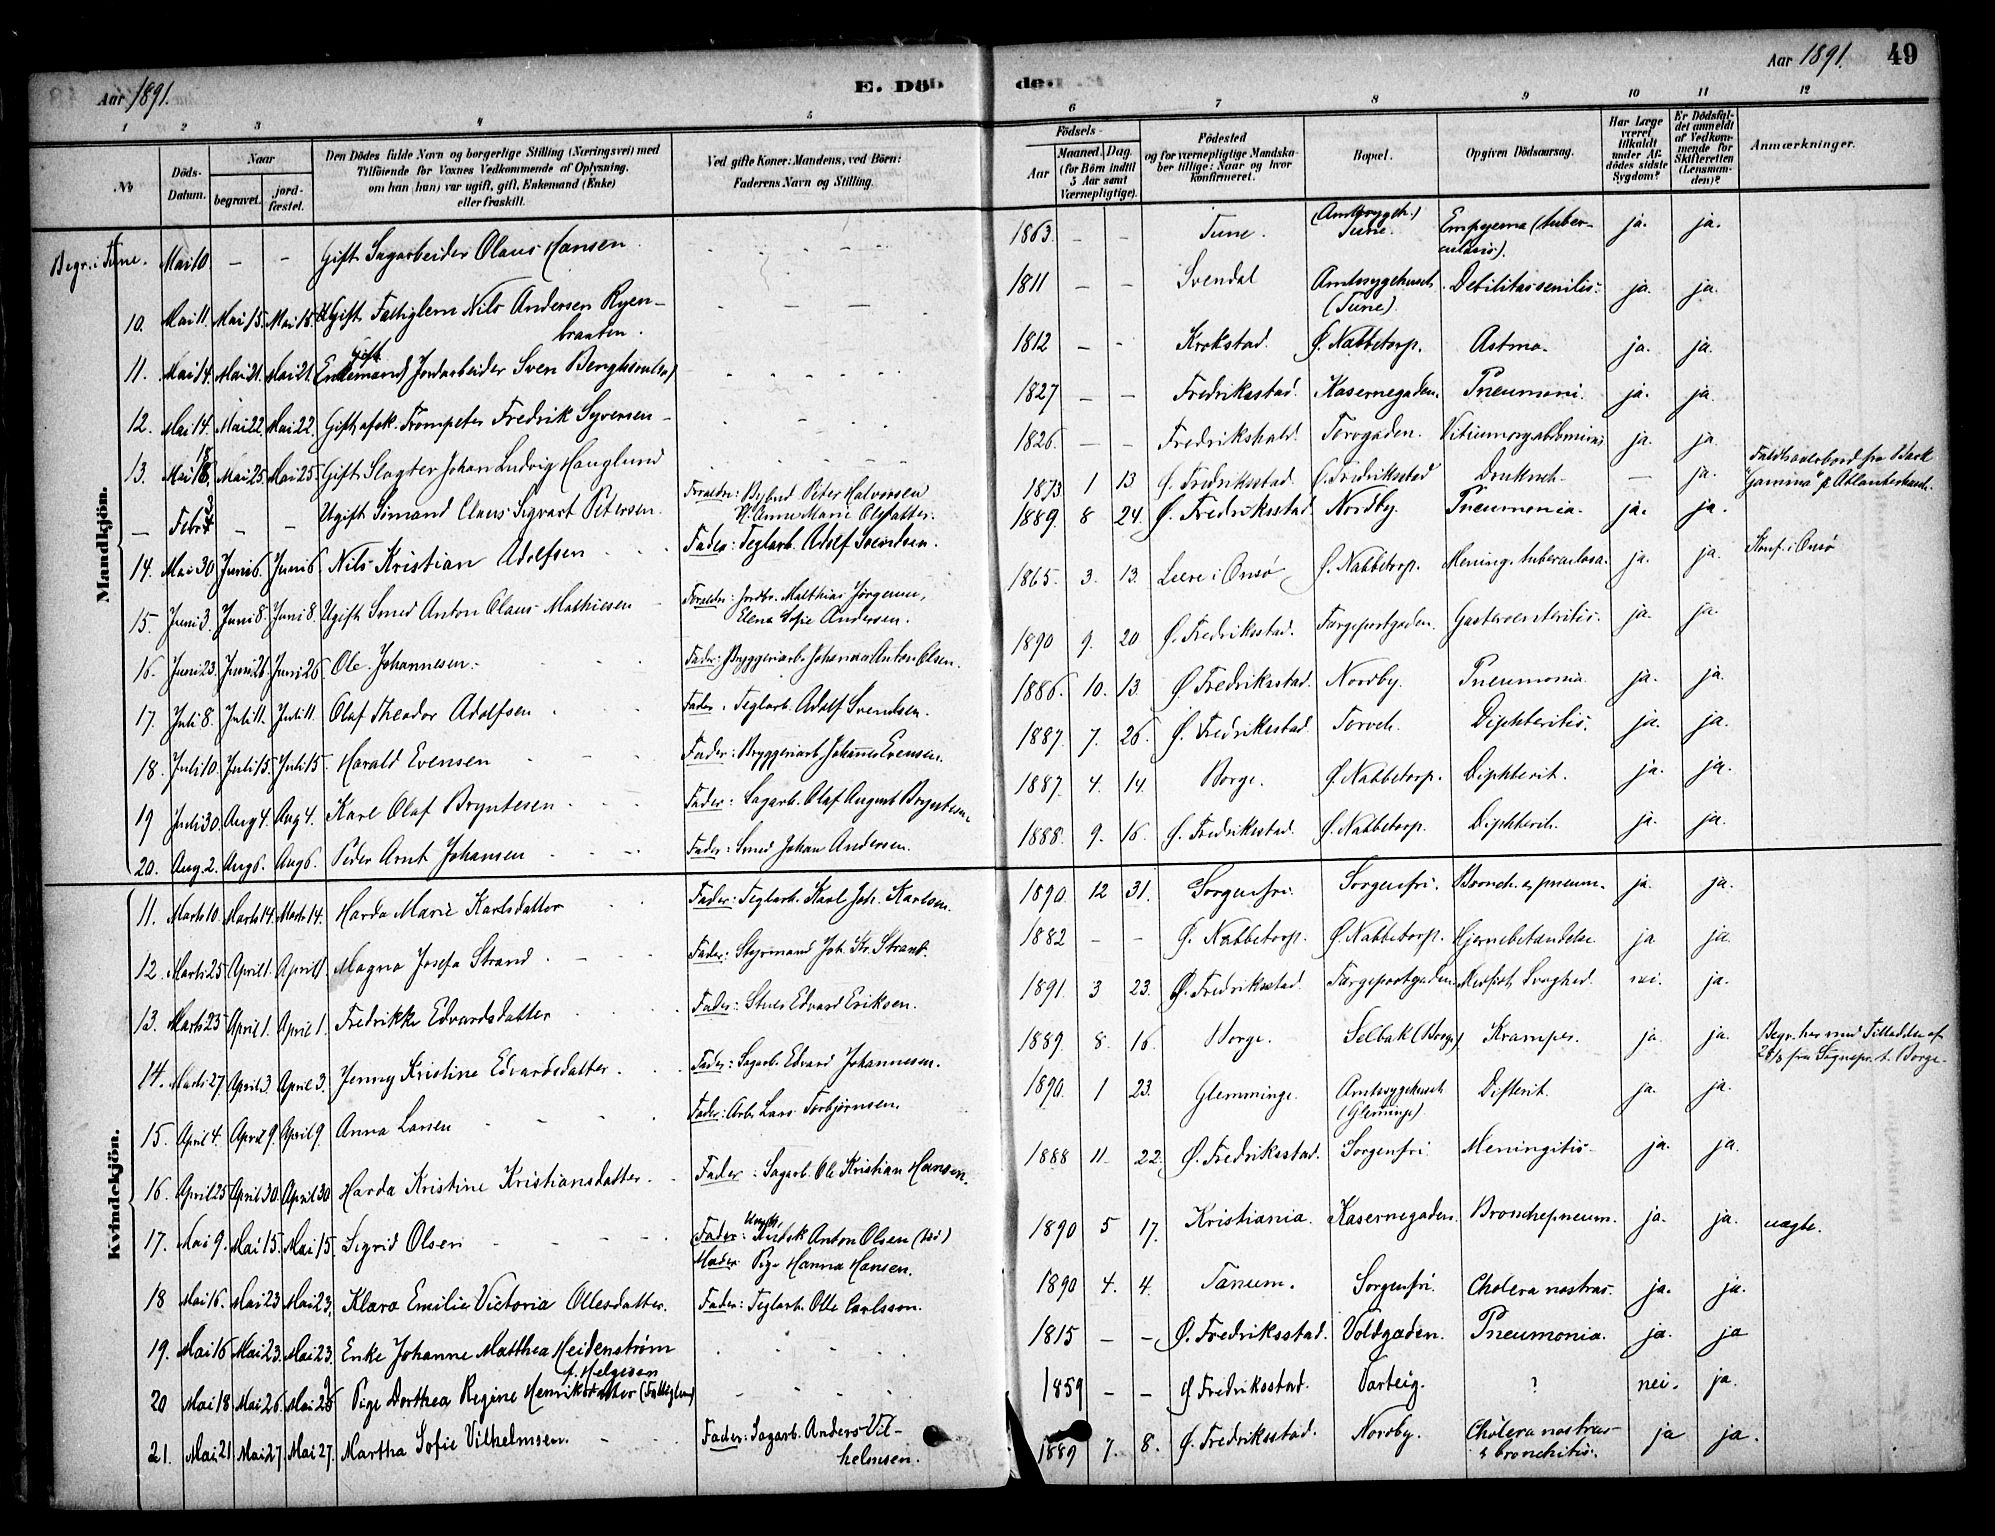 Aar 1891.
E. Döde.
Aar 1891.
49
1 2 3 4 5 6 7 8 9 10 11 12
No
Döds-Datum.
Naar
begravet.
jord-fæstet.
Den Dödes fulde Navn og borgerlige Stilling (Næringsvei) med
Tilföiende for Voxnes Vedkommende af Oplysning,
om han (hun) var ugift, gift, Enkemand (Enke)
eller fraskilt.
Ved gifte Koner: Mandens, ved Börn:
Faderens Navn og Stilling.
Födsels-
Aar
Maaned. Dag.
(for Börn indtil
5 Aar samt
Værnepligtige).
Födested
og for værnepligtige Mandska-
ber tillige: Naar og hvor
konfirmeret.
Bopæl.
Opgiven Dödsaarsag.
Har Læge været tilkaldt under Afdödes sidste Sygdom?
Er Dödsfaldet anmeldt af Vedkommende for Skifteretten (Lensmanden)?
Anmærkninger.
Mandkjön.
Begr. i Tune. Mai 10 — — Gift Sagarbeider Olaus Hansen 1863 — — Tune. (Amtssygeh.) Tune. Empyema (tuberculosis). ja. ja.
10. Mai 11. Mai 15. Mai 15. Ugift Fattiglem Nils Andersen Ryenbraaten. 1811 — — Svendal Amtssygehuset (Tune). Debilitas senilis. ja. ja.
11. Mai 14. Mai 21. Mai 21. (Enkemand) gift Jordarbeider Sven 1812 — — Krokstad. Ø. Nabbetorp. Astma. ja. ja.
12. Mai 14. Mai 22. Mai 22. Gift afsk. Trompeter Fredrik Syversen 1827 — — Fredriksstad. Kasernegaden. Pneumoni. ja. ja.
13. Mai 18. Mai 25. Mai 25. Gift Slagter Johan Ludvig Hauglund 1826. — — Fredrikshald. Torvgaden. Vitium org. abdominis ja. ja.
— Febr. — — Ugift Sömand Claus Sigvart Petersen. Forældre: Peter Halvorsen H. Anne Marie Olsdatter. 1873 1 13 Ø. Fredriksstad. Ø. Fredriksstad Druknet. — ja. Faldt overbord fra "Gemma" p. Atlanterhavet.
14. Mai 30 Juni 6. Juni 6 Nils Kristian Adolfsen Fader: Teglarb. Adolf Svendsen. 1889. 8 24. Ø. Fredriksstad Nordby. Pneumonia. ja. ja.
15. Juni 3. Juni 8. Juni 8. Ugift Smed Anton Olaus Mathiesen Forældre: Jordbr. Matthias Jörgensen, Elena Sofie Andersen. 1865. 3. 13. Leere i Onsø Ø. Nabbetorp. Mening. tuberculosa. ja. ja. Konf. i Onsø
16. Juni 23. Juni 26. Juni 26. Ole Johannesen. Fader: Bryggeriarb. Johannes Anton Olsen. 1890 9. 20 Ø. Fredriksstad. Færgeportgaden. Gasteroenteritis. ja. ja.
17. Juli 8. Juli 11. Juli 11. Olaf Theodor Adolfsen Fader: Teglarb. Adolf Svendsen. 1886. 10. 13. Ø. Fredriksstad. Nordby. Pneumonia ja. ja.
18. Juli 10. Juli 15. Juli 15 Harald Evensen Fader: Bryggeriarb. Johannes Evensen. 1887. 7. 26. Ø. Fredriksstad Torvet. Diphteritis. ja. ja.
19 Juli 30. Aug 4. Aug 4. Karl Olaf Bryntesen Fader: Sagarb. Olaf August Bryntesen. 1887. 4. 14. Borge. Ø. Nabbetorp. Diphterit. ja. ja.
20. Aug. 2. Aug 6. Aug 6. Peder Arnt Johansen Fader: Smed Johan Andersen. 1888. 9. 16. Ø. Fredriksstad. Ø. Nabbetorp. Diphterit. ja. ja.
Kvindekjön.
11. Marts 10 Marts 14. Marts 14. Harda Marie Karlsdatter Fader: Teglarb. Karl Joh. Karlsen. 1890. 12 31. Sorgenfri. Sorgenfri. Bronch. & pneum. ja. ja.
12. Marts 25 April 1. April 1 Magna Josefa Strand Fader: Styrmand Joh. Kr. Strand. 1882 — — Ø. Nabbetorp. Ø. Nabbetorp. Hjernebetændelse ja ja.
13. Marts 23 April 1. April 1. Fredrikke Edvardsdatter Fader: Edvard Eriksen. 1891. 3 23. Ø. Fredriksstad. Færgeportgaden. Medfødt Svaghed. nei. ja.
14. Marts 27. April 3 April 3. Jenny Kristine Edvardsdatter. Fader: Sagarb. Edvard Johannesen. 1889. 8. 16. Borge. Selbak (Borge) Kramper. ja. ja. Begr. her med Tilladelse af 28/3 fra Sognepr. t. Borge.
15. April 4. April 9. April 9. Anna Larsen Fader: Arb. Lars Torbjörnsen. 1890. 1 23. Glemminge. Amtssygehuset (Glemminge) Difterit. ja. ja.
16. April 25 April 30 April 30 Harda Kristine Kristiansdatter Fader: Sagarb. Ole Kristian Hansen. 1888 11. 22. Ø. Fredriksstad. Sorgenfri. Meningitis. ja. ja.
17. Mai 9. Mai 15. Mai 15. Sigrid Olsen Fader: Ungk. Anton Olsen Moder: Pige Hanna Hansen. 1890 5 17. Kristiania. Kasernegaden. Bronchopneum. ja. ja. uægte.
18 Mai 16. Mai 23 Mai 23. Klara Emilie Victoria Ollesdatter. Fader: Teglarb. Olle Carlsson. 1890 4. 4. Tanum. Sorgenfri. Cholera nostras. ja. ja.
19. Mai 16 Mai 23. Mai 23. Enke Johanne Matthea Heidenstrøm f. Helgesen 1815 — — Ø. Fredriksstad. Voldgaden. Pneumonia. ja. ja
20 Mai 18 Mai 26. Mai 26 Pige Dorthea Regine Henriksdatter (Fattiglem) 1859 — — Ø Fredriksstad. Varteig. ? nei. ja.
21. Mai 21 Mai 27. Mai 27. Martha Sofie Vilhelmsen. Fader: Sagarb. Anders Vilhelmsen. 1889 7. 8. Ø. Fredriksstad. Nordby. Cholera nostras & bronchitis. ja ja.